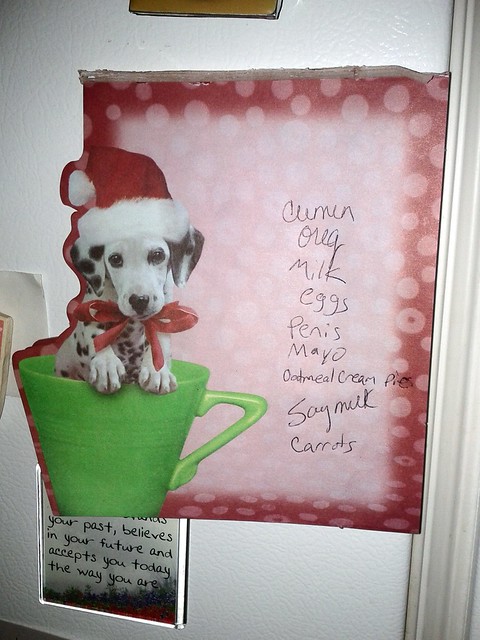 Cumin
Oreg
Milk
eggs
Penis
Mayo
Oatmeal Cream Pies
Soy milk
Carrots
your past, believes
in your future and
accepts you today
the way you are